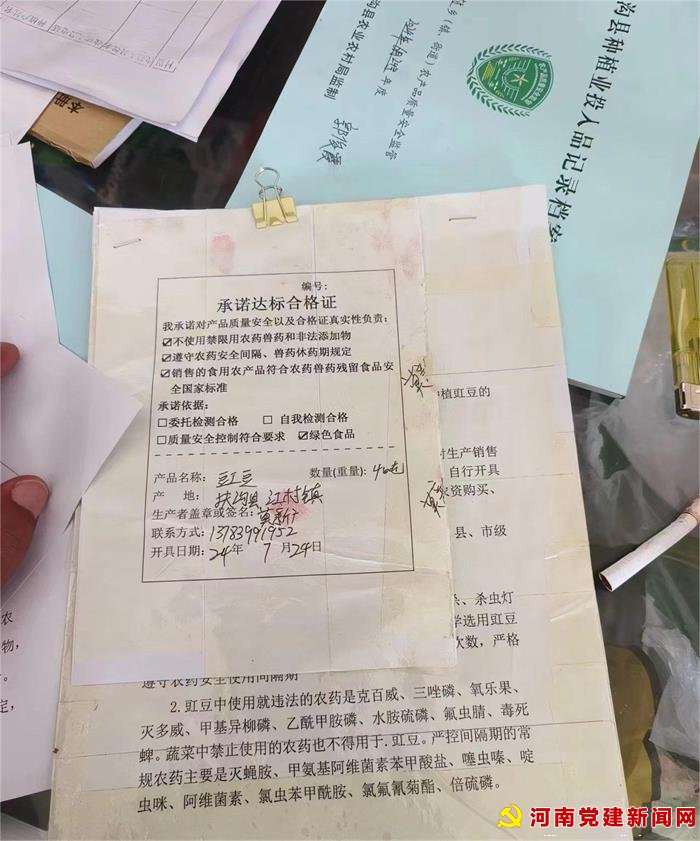 沟县种植业投入品记录档案
乡(镇、街道)农产品质量安全监管
沟县农业农村局监制
编号:
承诺达标合格证
我承诺对产品质量安全以及合格证真实性负责:
☑不使用禁限用农药兽药和非法添加物
☑遵守农药安全间隔、兽药休药期规定
☑销售的食用农产品符合农药兽药残留食品安
全国家标准
承诺依据:
□委托检测合格 □自我检测合格
□质量安全控制符合要求 ☑绿色食品
产品名称: 豆豇豆 数量(重量):
产 地: 扶沟县 江村镇
生产者盖章或签名:
联系方式: 13783991952
开具日期: 24年 7月24日
种植豇豆的
对生产销售
自行开具
农资购买、
县、市级
杀、杀虫灯
学选用豇豆
次数,严格
遵守农药安全使用间隔期
2.豇豆中使用就违法的农药是克百威、三唑磷、氧乐果、
灭多威、甲基异柳磷、乙酰甲胺磷、水胺硫磷、氟虫腈、毒死
蜱。蔬菜中禁止使用的农药也不得用于.豇豆。严控间隔期的常
规农药主要是灭蝇胺、甲氨基阿维菌素苯甲酸盐、噻虫嗪、啶
虫咪、阿维菌素、氯虫苯甲酰胺、氯氟氰菊酯、倍硫磷。
河南党建新闻网